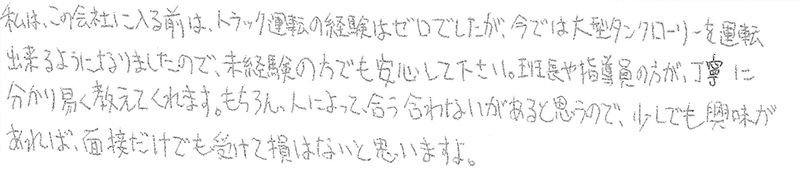 私は、この会社に入る前は、トラック運転の経験はゼロでしたが、今では大型タンクローリーを運転
出来るようになりましたので、未経験の方でも安心して下さい。班長や指導員の方が、丁寧に
分かり易く教えてくれます。もちろん、人によって、合う合わないがあると思うので、少しでも興味が
あれば、面接だけでも受けて損はないと思いますよ。